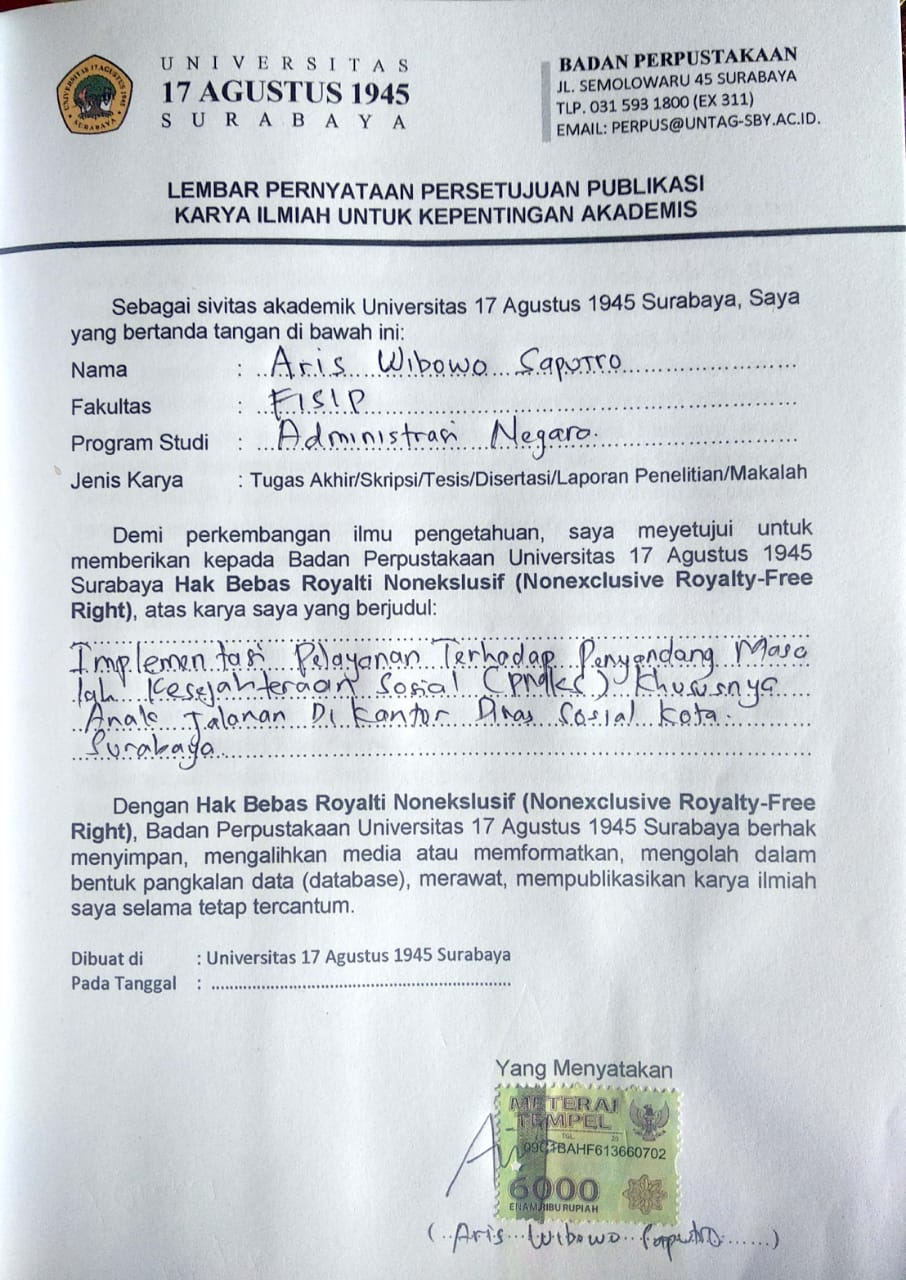 UNIVERSITAS 17 AGUSTUS 1945
SURABAYA
UNIVERSITAS
17 AGUSTUS 1945
SURABAYA
BADAN PERPUSTAKAAN
JL. SEMOLOWARU 45 SURABAYA
TLP. 031 593 1800 (EX 311)
EMAIL: PERPUS@UNTAG-SBY.AC.ID.
LEMBAR PERNYATAAN PERSETUJUAN PUBLIKASI
KARYA ILMIAH UNTUK KEPENTINGAN AKADEMIS
Sebagai sivitas akademik Universitas 17 Agustus 1945 Surabaya, Saya
yang bertanda tangan di bawah ini:
Nama : Aris Wibowo Saputro
Fakultas : FISIP
Program Studi : Administrasi Negara.
Jenis Karya : Tugas Akhir/Skripsi/Tesis/Disertasi/Laporan Penelitian/Makalah
Demi perkembangan ilmu pengetahuan, saya meyetujui untuk
memberikan kepada Badan Perpustakaan Universitas 17 Agustus 1945
Surabaya Hak Bebas Royalti Nonekslusif (Nonexclusive Royalty-Free
Right), atas karya saya yang berjudul:
Implementasi Pelayanan Terhadap Penyandang Masa
lah Kesejahteraan Sosial (PMKS) Khususnya
Anak Jalanan Di Kantor Dinas Sosial Kota.
Surabaya
Dengan Hak Bebas Royalti Nonekslusif (Nonexclusive Royalty-Free
Right), Badan Perpustakaan Universitas 17 Agustus 1945 Surabaya berhak
menyimpan, mengalihkan media atau memformatkan, mengolah dalam
bentuk pangkalan data (database), merawat, mempublikasikan karya ilmiah
saya selama tetap tercantum.
Dibuat di : Universitas 17 Agustus 1945 Surabaya
Pada Tanggal :
Yang Menyatakan
METERAI
TEMPEL
TGL. 20
BAHF613660702
6000
ENAM RIBU RUPIAH
(Aris Wibowo Saputro)